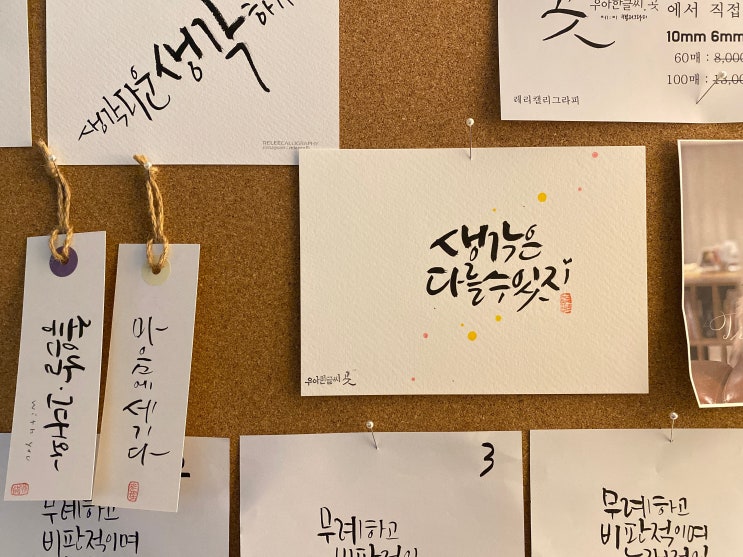 생각다운생각
하기
RELEECALLIGRAPHY
우아한글씨.곳
에서 직접
10mm 6mm
60매 : 8,000
100매 : 13,000
레리캘리그라피
생각은
다를수있지
우아한글씨 곳
흐름.그대와
with you
마음에 새기다
무례하고
비판적이며
3
무례하고
비판적이
무례하고
비판적이며